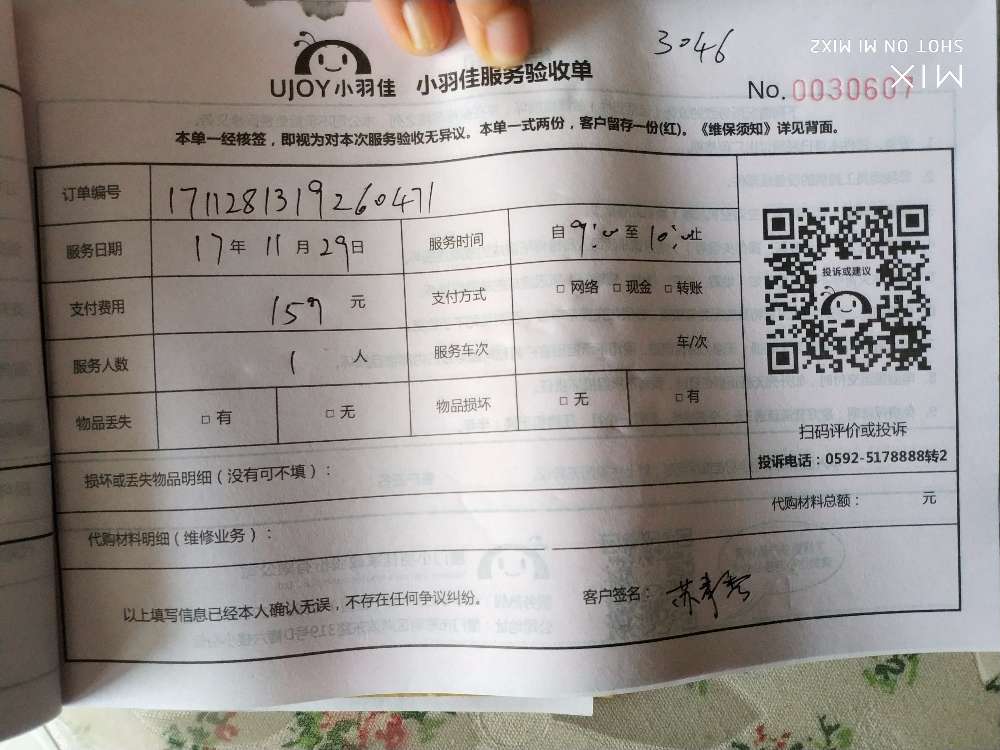 3046
SHOT ON MI MIX2
MIX
UJOY小羽佳 小羽佳服务验收单
No. 0030607
本单一经核签，即视为对本次服务验收无异议。本单一式两份，客户留存一份(红)。《维保须知》详见背面。
订单编号 1711281319260471
服务日期 17年 11月 29日 服务时间 自9:00至10:00止
支付费用 159 元 支付方式 □网络 □现金 □转账
服务人数 1 人 服务车次 车/次
物品丢失 □有 □无 物品损坏 □无 □有
投诉或建议
扫码评价或投诉
投诉电话：0592-5178888转2
损坏或丢失物品明细（没有可不填）：
代购材料总额： 元
代购材料明细（维修业务）：
以上填写信息已经本人确认无误，不存在任何争议纠纷。
客户签名：